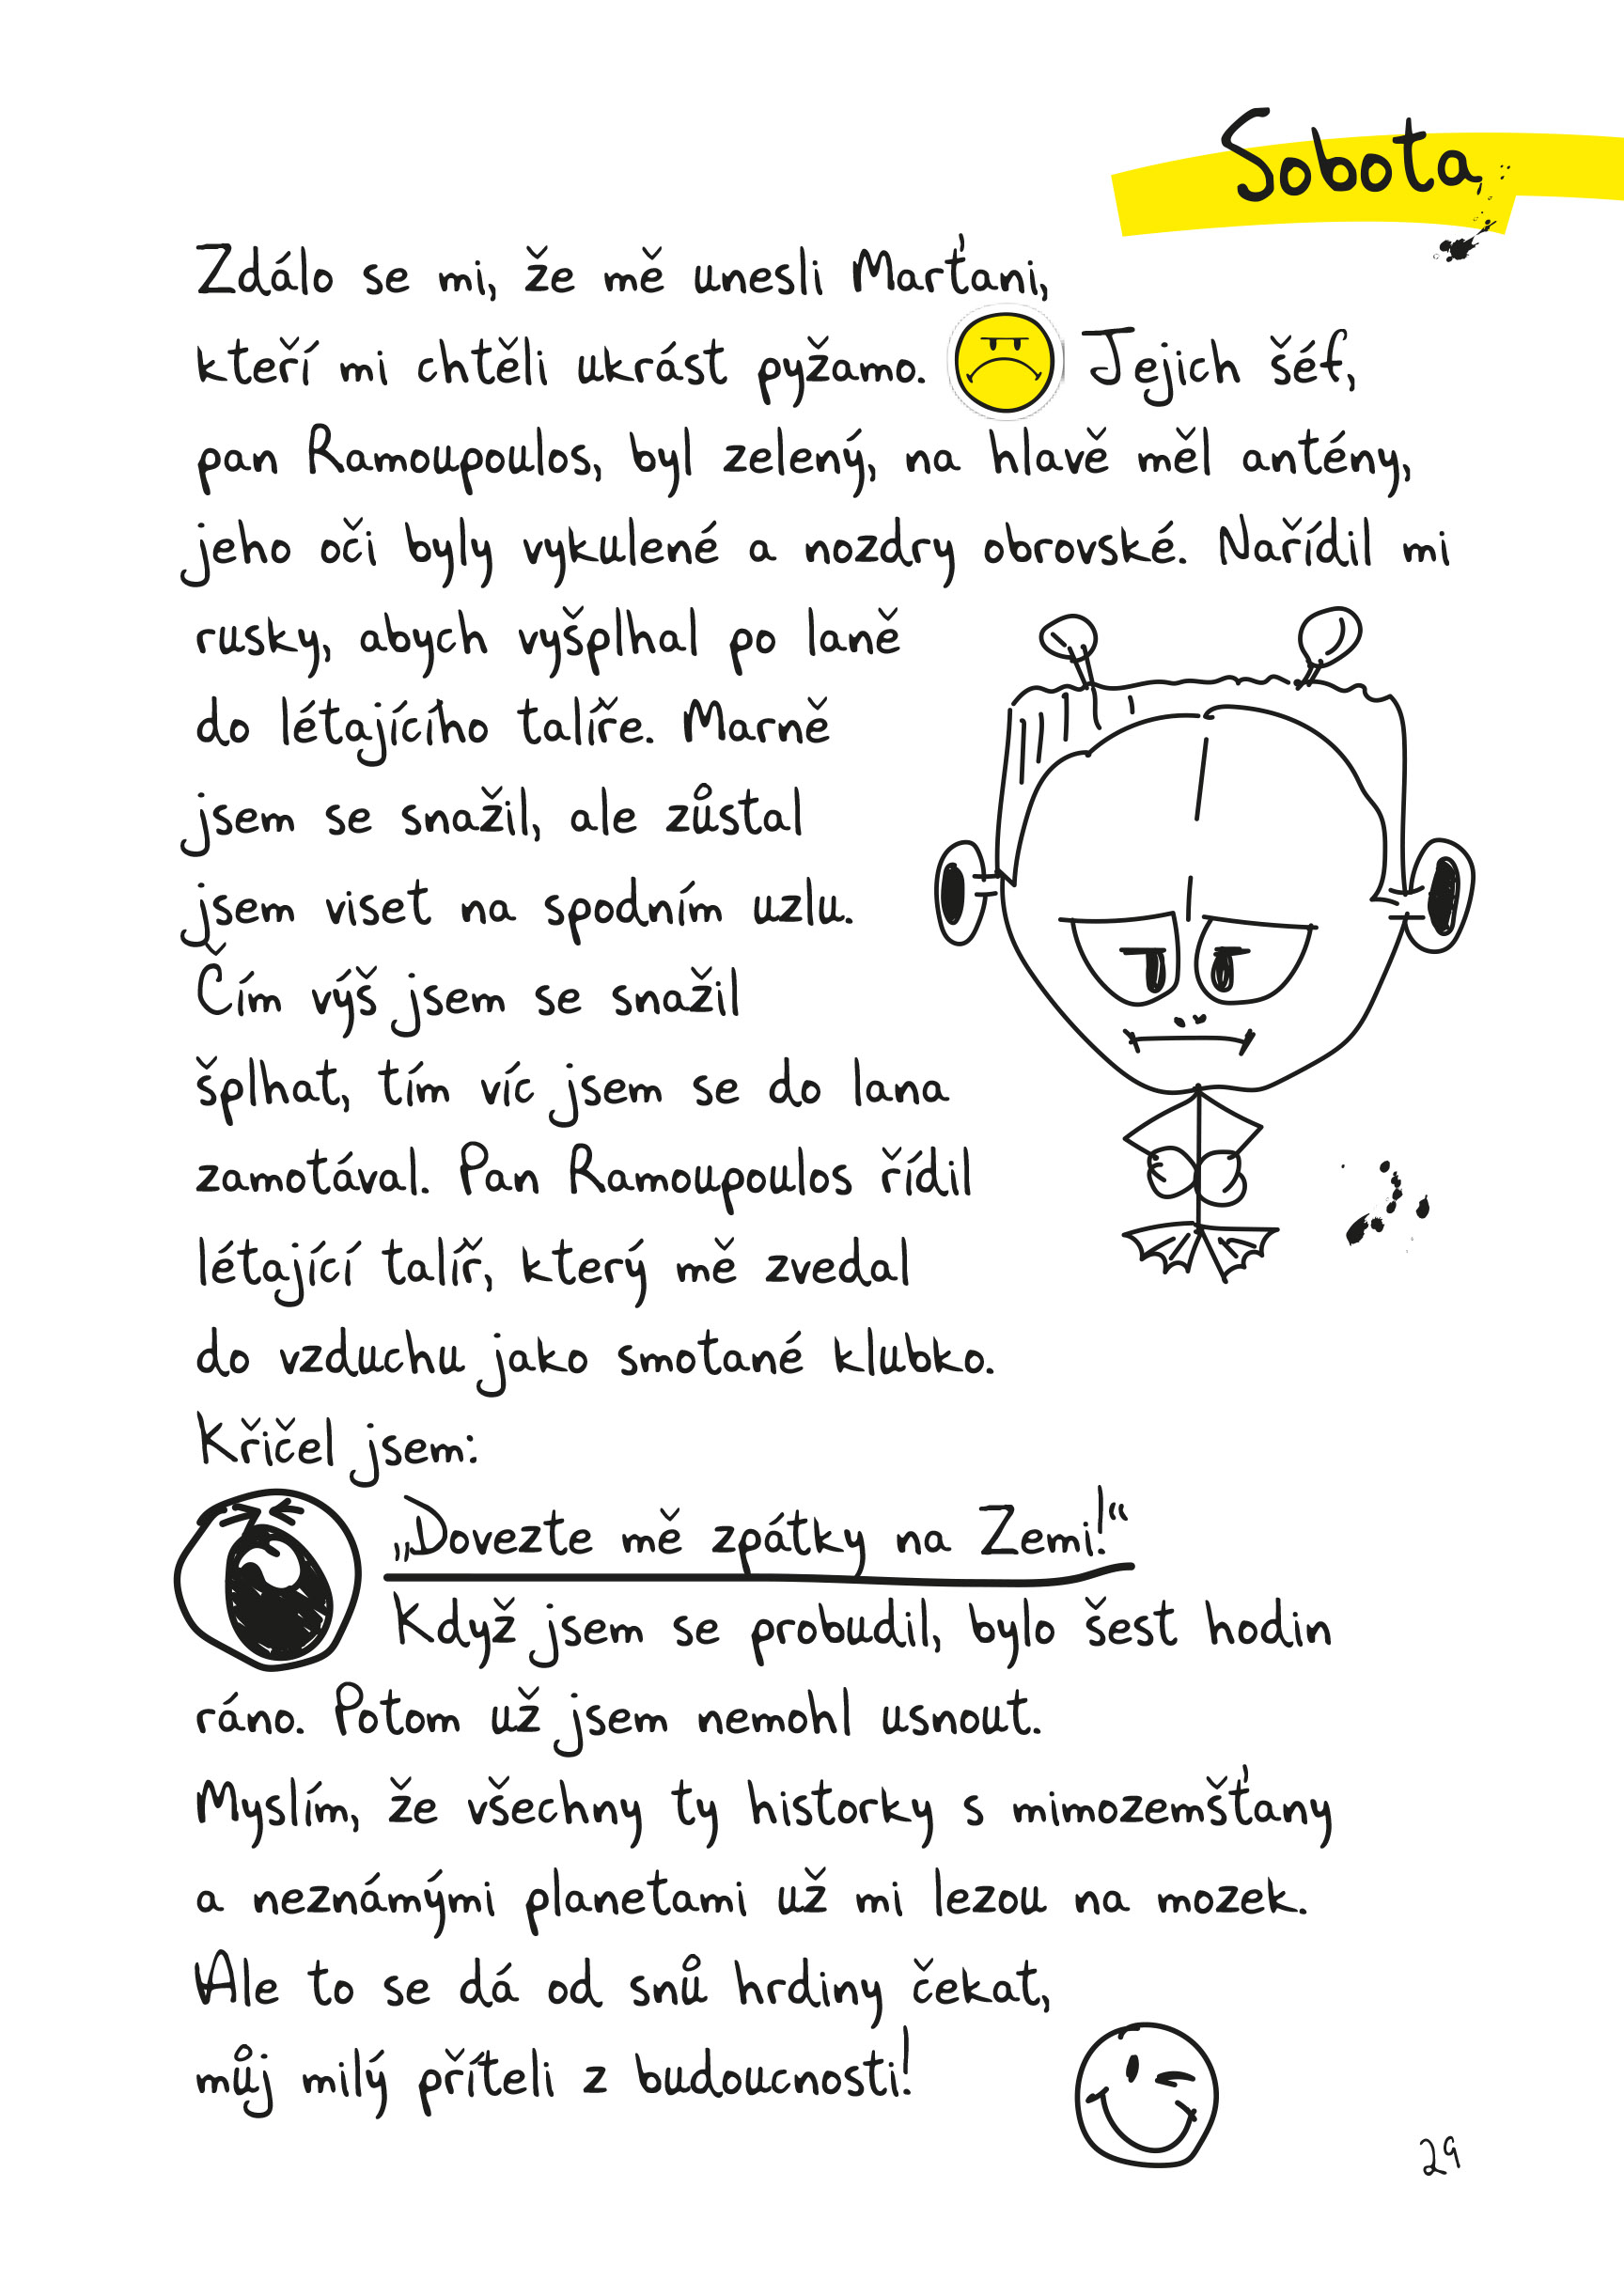 Sobota
Zdálo se mi, že mě unesli Marťani,
kteří mi chtěli ukrást pyžamo. Jejich šéf,
pan Ramoupoulos, byl zelený, na hlavě měl antény,
jeho oči byly vykulené a nozdry obrovské. Nařídil mi
rusky, abych vyšplhal po laně
do létajícího talíře. Marně
jsem se snažil, ale zůstal
jsem viset na spodním uzlu.
Čím výš jsem se snažil
šplhat, tím víc jsem se do lana
zamotával. Pan Ramoupoulos řídil
létající talíř, který mě zvedal
do vzduchu jako smotané klubko.
Křičel jsem:
„Dovezte mě zpátky na Zemi!“
Když jsem se probudil, bylo šest hodin
ráno. Potom už jsem nemohl usnout.
Myslím, že všechny ty historky s mimozemšťany
a neznámými planetami už mi lezou na mozek.
Ale to se dá od snů hrdiny čekat,
můj milý příteli z budoucnosti!
29